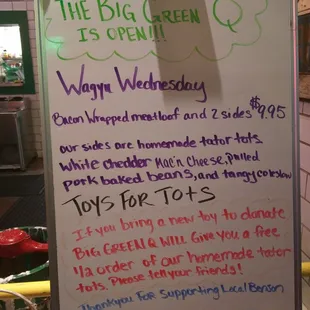 THE BIG GREEN Q
IS OPEN!!!
Wagyu Wednesday
Bacon Wrapped meatloaf and 2 sides $9.95
our sides are homemade tator tots
white chedder Mac'n cheese, pulled
pork baked beans, and tangy coleslow
TOYS FOR TOTS
If you bring a new toy to donate
BIG GREEN Q WILL Give you a free
1/2 order of our homemade tator
tots. Please tell your friends!
Thankyou For Supporting Local Benson